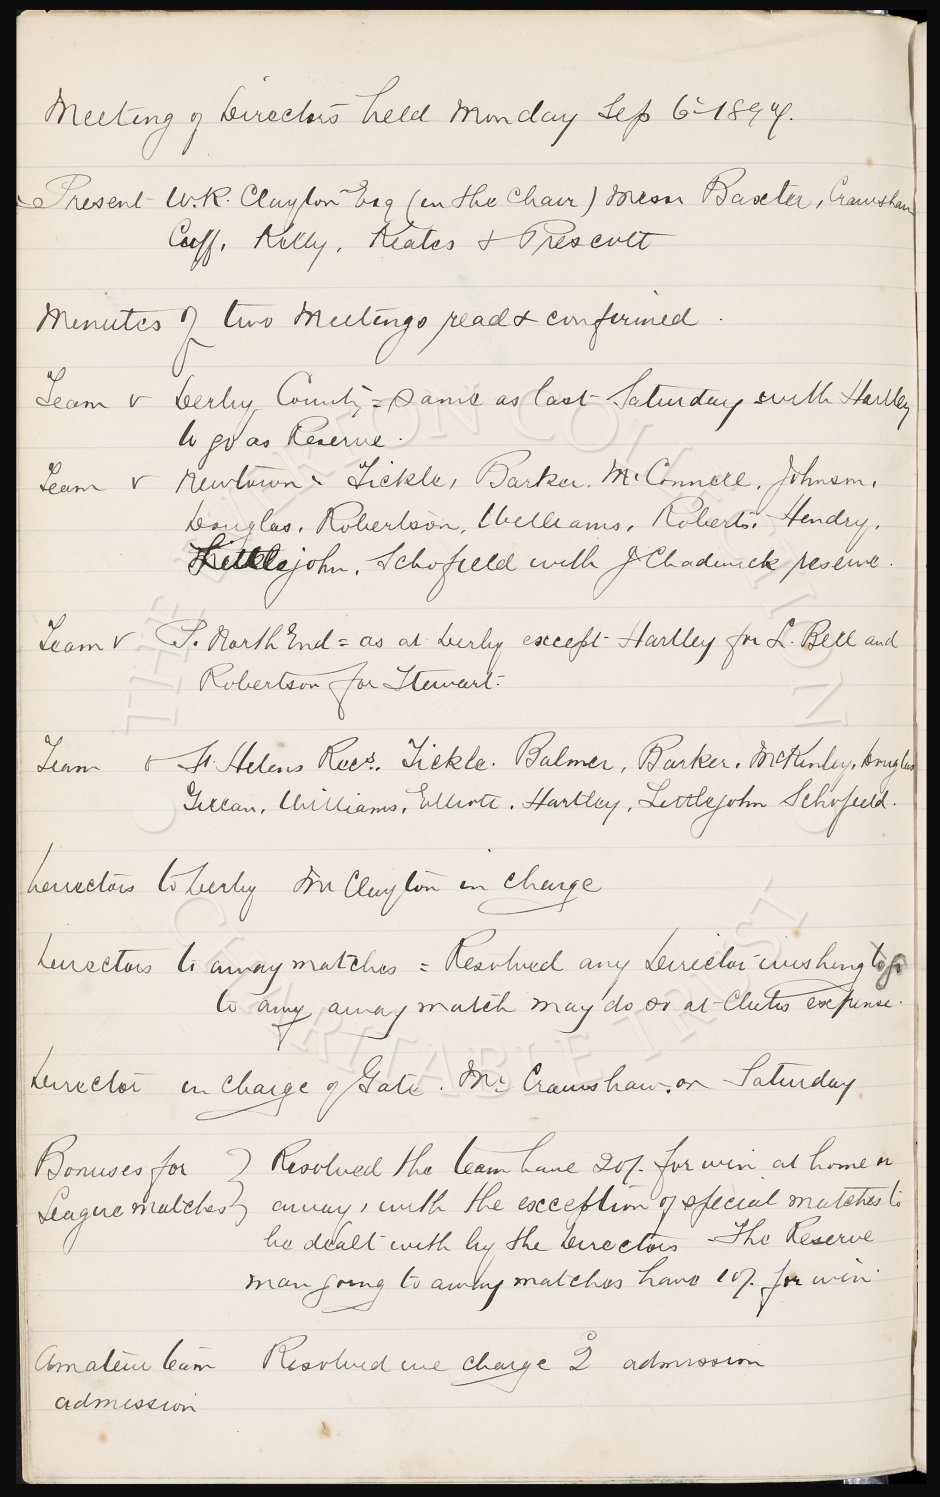 Meeting of Directors held Monday Sep 6th 1897.
Present W.R. Clayton Esq (in the Chair) Messrs Baxter, Crawshaw
Cuff, Kelly, Keates & Prescott
Minutes of two Meetings read & confirmed.
Team v Derby County = Same as last Saturday with Hartley
to go as Reserve.
Team v Newtown. Tickle, Barker. McConnell. Johnson,
Douglas, Robertson, Williams, Roberts, Hendry,
Littlejohn, Schofield with J Chadwick reserve.
Team v P. North End = as at Derby except Hartley for L. Bell and
Robertson for Stewart.
Team v St Helens Recs. Tickle. Balmer, Barker. McKinley. Douglas
Gillan, Williams, Elliott. Hartley, Littlejohn Schofield.
Directors to Derby Mr Clayton in charge
Directors to away matches = Resolved any Director wishing to go
to any away match may do so at Clubs expense.
Director in charge of Gate. Mr Crawshaw. on Saturday
Bonuses for } Resolved the team have 20/- for win at home or
League matches } away, with the exception of special matches to
be dealt with by the Directors The Reserve
man going to away matches have 10/- for win
Amateur team Resolved we charge 2d admission
admission
THE EVERTON COLLECTION
CHARITABLE TRUST